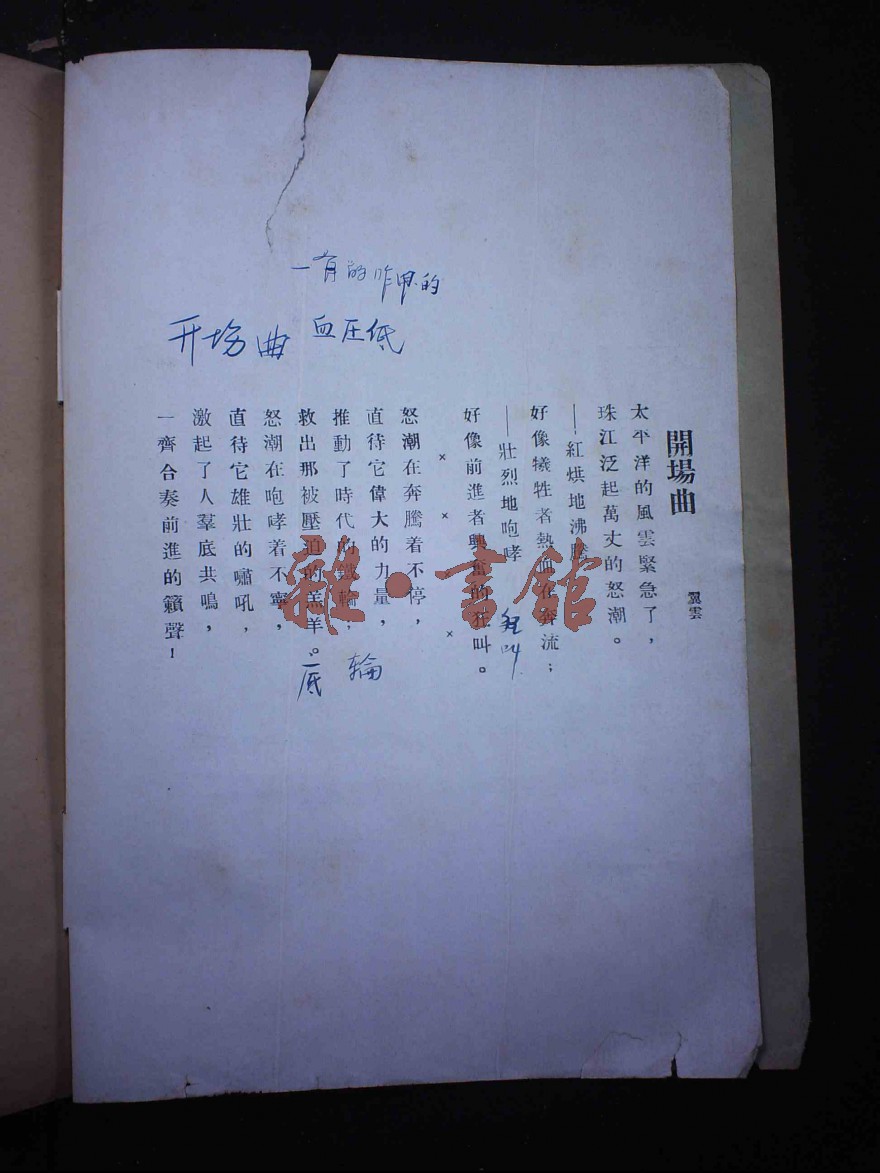 開場曲
翼雲
太平洋的風雲緊急了，
珠江泛起萬丈的怒潮。
——紅烘地沸騰
好像犧牲者熱血在奔流；
——壯烈地咆哮
好像前進者興奮的狂叫。
× × ×
怒潮在奔騰着不停，
直待它偉大的力量，
推動了時代的鐵輪，
救出那被壓迫的羔羊。
怒潮在咆哮着不寧，
直待它雄壯的嘯吼，
激起了人羣底共鳴，
一齊合奏前進的籟聲！
开场曲 血压低
輪
底
雜·書館